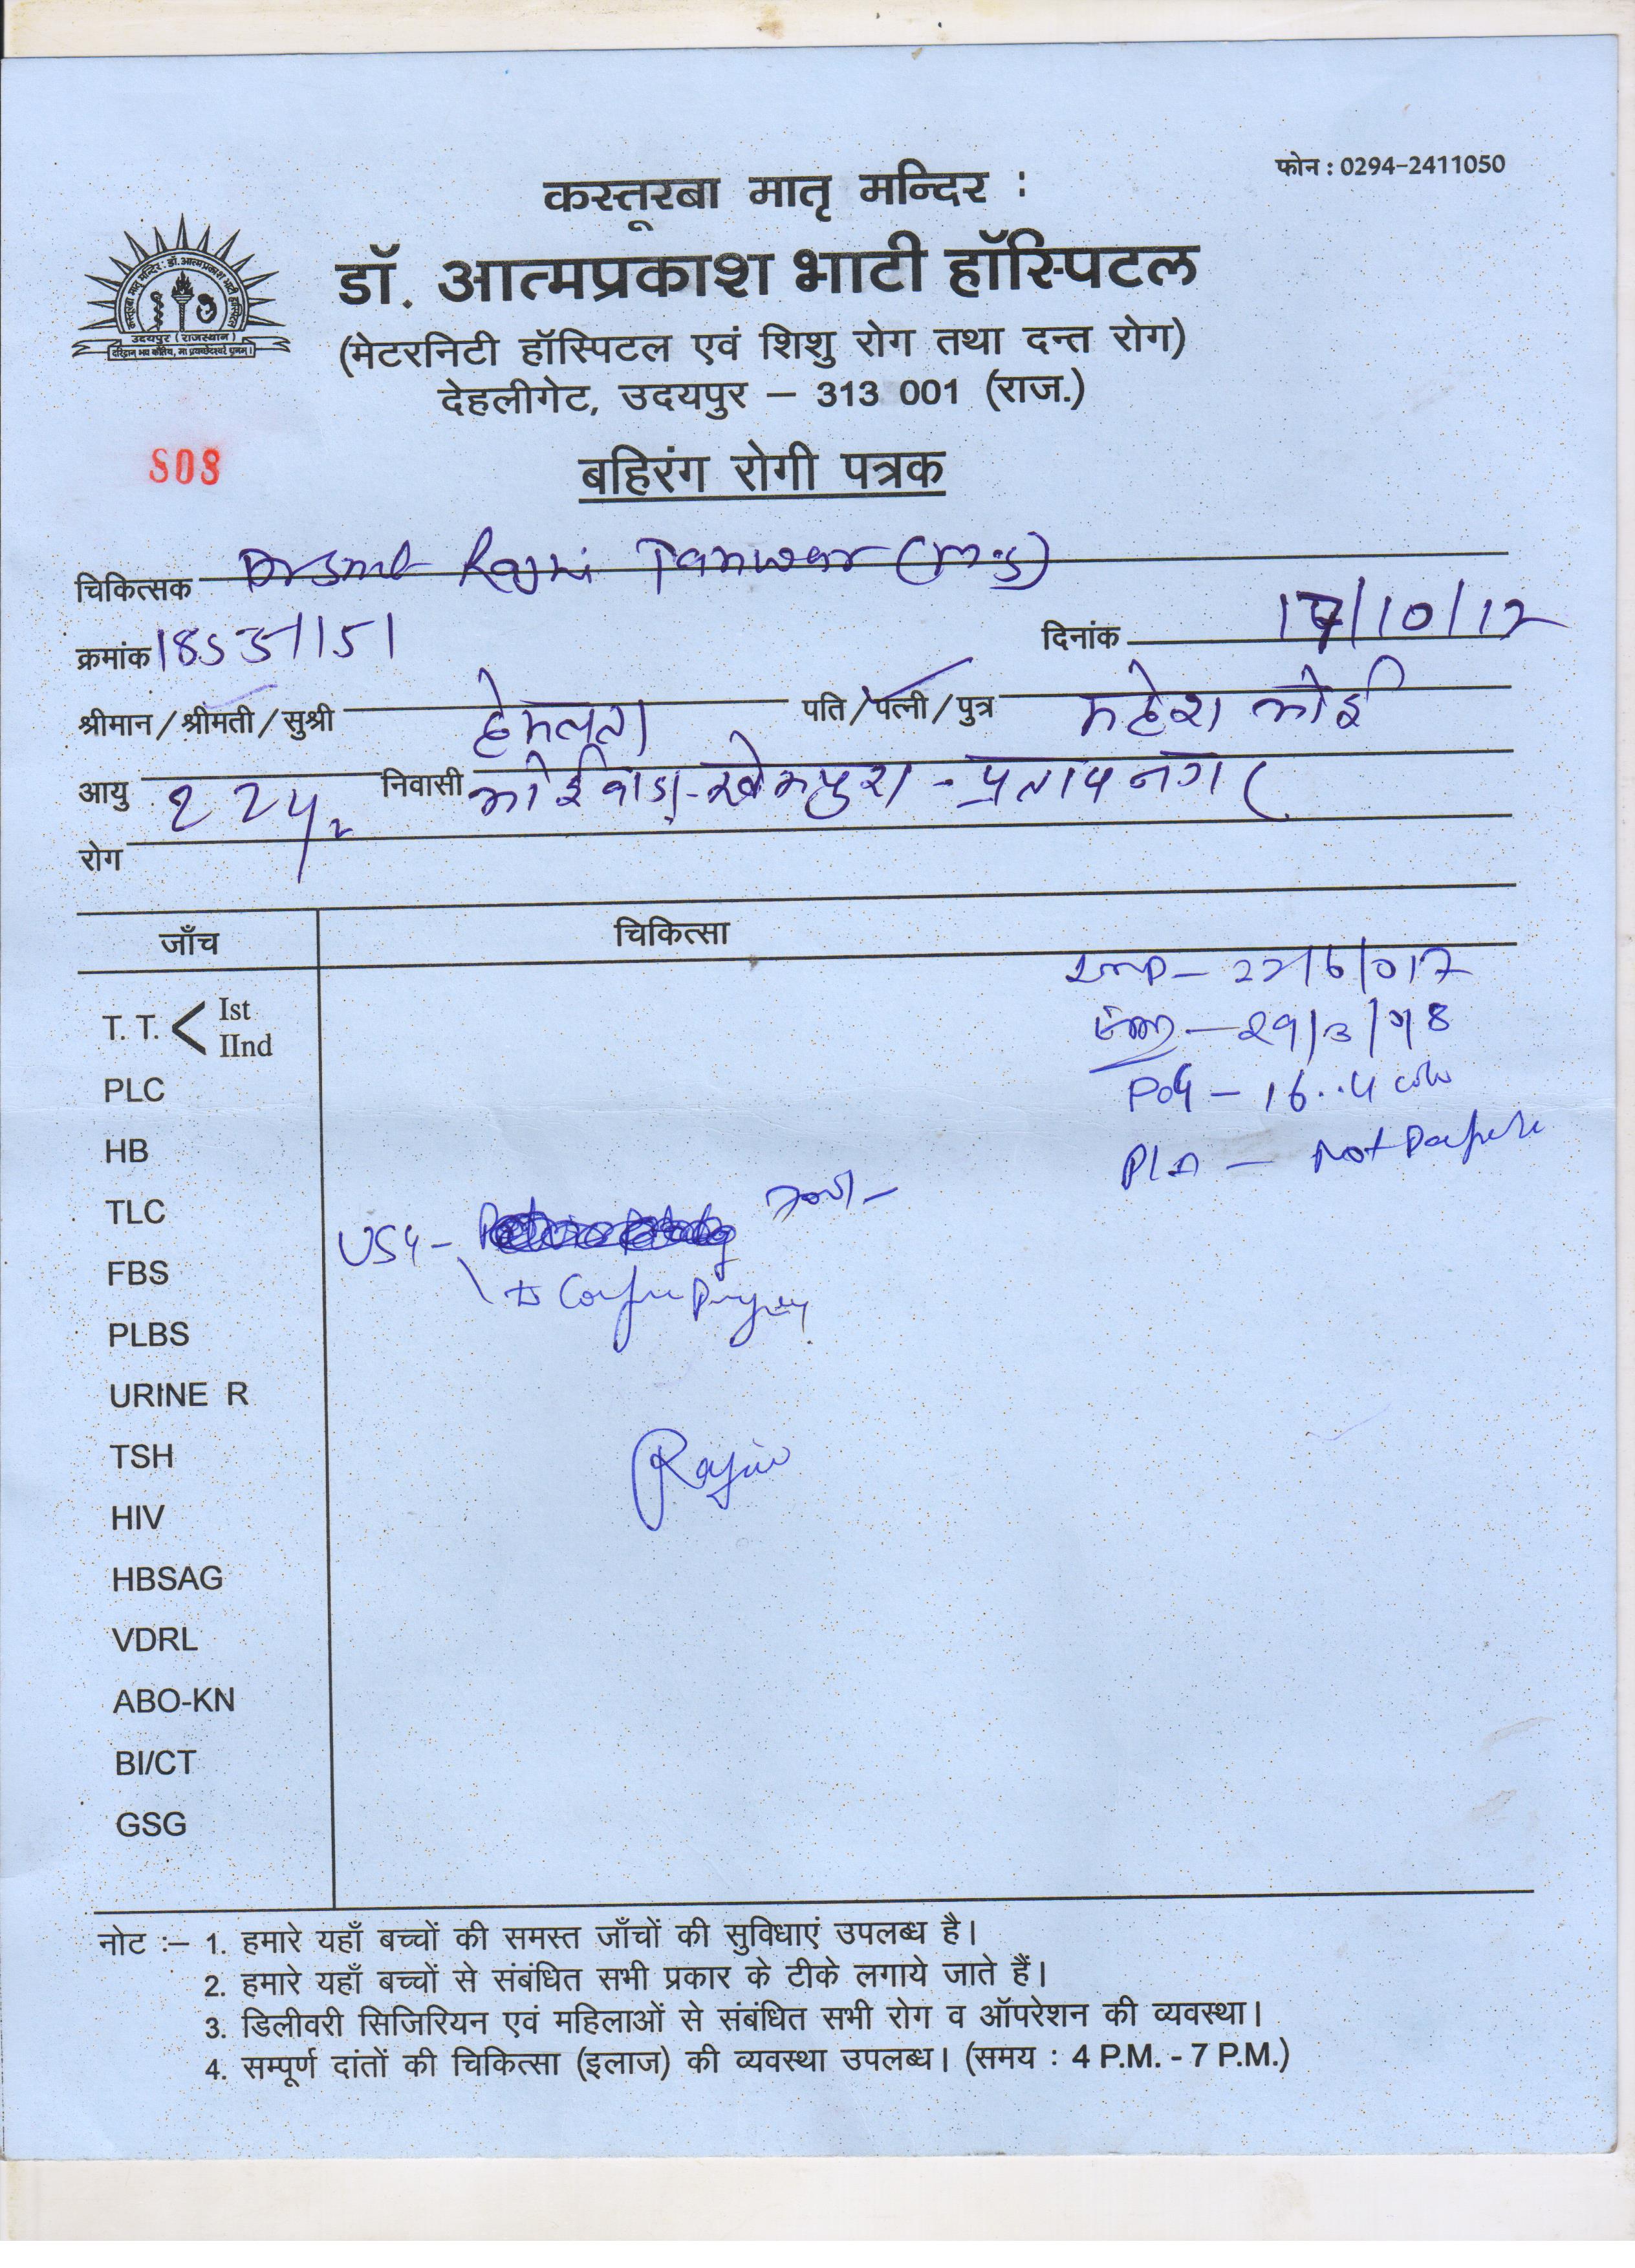 फोन : 0294-2411050
कस्तूरबा मातृ मन्दिर :
डॉ. आत्मप्रकाश भाटी हॉस्पिटल
(मेटरनिटी हॉस्पिटल एवं शिशु रोग तथा दन्त रोग)
देहलीगेट, उदयपुर – 313 001 (राज.)
उदयपुर (राजस्थान)
808
बहिरंग रोगी पत्रक
चिकित्सक Dr Smt Rajni Tanwar (M.S)
क्रमांक दिनांक 17/10/17
श्रीमान / श्रीमती / सुश्री हेमलता पति / पत्नी / पुत्र महेश भोई
आयु 22 yr निवासी भोईवाडा-खेमपुरा-प्रतापनगर
रोग
जाँच चिकित्सा
LMP – 22/6/017
EDD – 29/3/18
POG – 16..4 wks
P/A – Not Palpable
T. T. < Ist
IInd
PLC
HB
TLC
FBS
PLBS
URINE R
TSH
HIV
HBSAG
VDRL
ABO-KN
BI/CT
GSG
USG –
to Confirm Pregnancy
Rajni
नोट :– 1. हमारे यहाँ बच्चों की समस्त जाँचों की सुविधाएं उपलब्ध है।
2. हमारे यहाँ बच्चों से संबंधित सभी प्रकार के टीके लगाये जाते हैं।
3. डिलीवरी सिजिरियन एवं महिलाओं से संबंधित सभी रोग व ऑपरेशन की व्यवस्था।
4. सम्पूर्ण दांतों की चिकित्सा (इलाज) की व्यवस्था उपलब्ध। (समय : 4 P.M. - 7 P.M.)